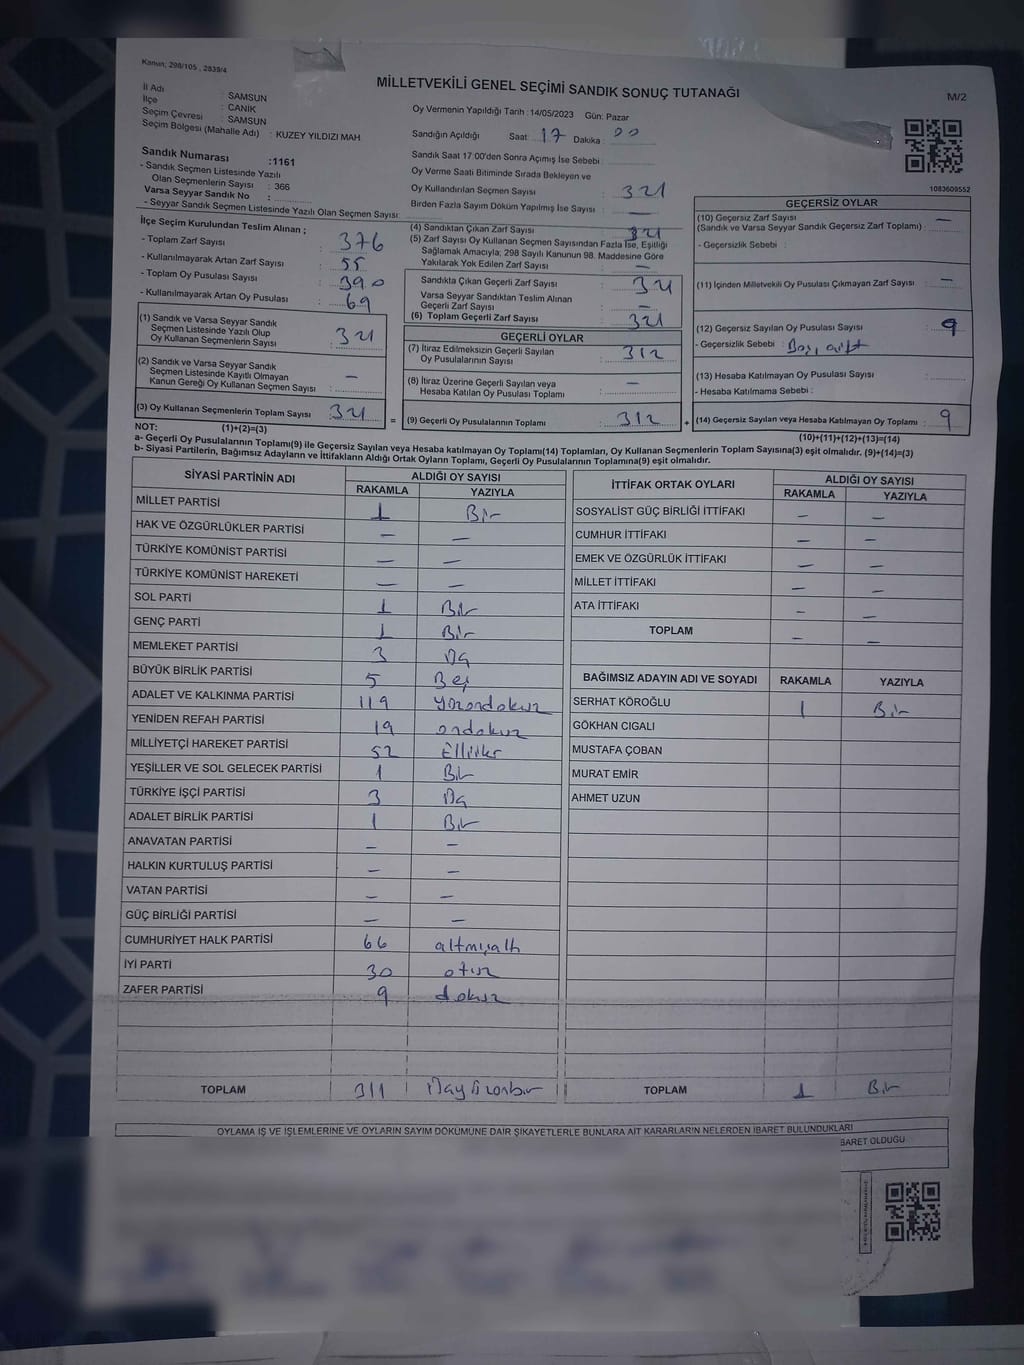 Kanun; 298/105 , 2839/4
MİLLETVEKİLİ GENEL SEÇİMİ SANDIK SONUÇ TUTANAĞI
M/2
İl Adı : SAMSUN
İlçe : CANİK
Seçim Çevresi : SAMSUN
Seçim Bölgesi (Mahalle Adı) : KUZEY YILDIZI MAH
Sandık Numarası :1161
- Sandık Seçmen Listesinde Yazılı
Olan Seçmenlerin Sayısı : 366
Varsa Seyyar Sandık No :
- Seyyar Sandık Seçmen Listesinde Yazılı Olan Seçmen Sayısı:
Oy Vermenin Yapıldığı Tarih : 14/05/2023 Gün: Pazar
Sandığın Açıldığı Saat: 17 Dakika : 00
Sandık Saat 17:00'den Sonra Açımış İse Sebebi :
Oy Verme Saati Bitiminde Sırada Bekleyen ve
Oy Kullandırılan Seçmen Sayısı : 321
Birden Fazla Sayım Döküm Yapılmış İse Sayısı : —
1083609552
İlçe Seçim Kurulundan Teslim Alınan ;
- Toplam Zarf Sayısı : 376
- Kullanılmayarak Artan Zarf Sayısı : 55
- Toplam Oy Pusulası Sayısı : 390
- Kullanılmayarak Artan Oy Pusulası : 69
(1) Sandık ve Varsa Seyyar Sandık
Seçmen Listesinde Yazılı Olup
Oy Kullanan Seçmenlerin Sayısı : 321
(2) Sandık ve Varsa Seyyar Sandık
Seçmen Listesinde Kayıtlı Olmayan
Kanun Gereği Oy Kullanan Seçmen Sayısı : —
(3) Oy Kullanan Seçmenlerin Toplam Sayısı : 321
(4) Sandıktan Çıkan Zarf Sayısı : 321
(5) Zarf Sayısı Oy Kullanan Seçmen Sayısından Fazla İse, Eşitliği
Sağlamak Amacıyla; 298 Sayılı Kanunun 98. Maddesine Göre
Yakılarak Yok Edilen Zarf Sayısı : —
Sandıkta Çıkan Geçerli Zarf Sayısı : 321
Varsa Seyyar Sandıktan Teslim Alınan
Geçerli Zarf Sayısı : —
(6) Toplam Geçerli Zarf Sayısı : 321
GEÇERLİ OYLAR
(7) İtiraz Edilmeksizin Geçerli Sayılan
Oy Pusulalarının Sayısı : 312
(8) İtiraz Üzerine Geçerli Sayılan veya
Hesaba Katılan Oy Pusulası Toplamı : —
= (9) Geçerli Oy Pusulalarının Toplamı : 312 +
GEÇERSİZ OYLAR
(10) Geçersiz Zarf Sayısı —
(Sandık ve Varsa Seyyar Sandık Geçersiz Zarf Toplamı) :
- Geçersizlik Sebebi :
(11) İçinden Milletvekili Oy Pusulası Çıkmayan Zarf Sayısı : —
(12) Geçersiz Sayılan Oy Pusulası Sayısı : 9
- Geçersizlik Sebebi : Boş, çift
(13) Hesaba Katılmayan Oy Pusulası Sayısı :
- Hesaba Katılmama Sebebi :
(14) Geçersiz Sayılan veya Hesaba Katılmayan Oy Toplamı : 9
NOT: (1)+(2)=(3)
(10)+(11)+(12)+(13)=(14)
a- Geçerli Oy Pusulalarının Toplamı(9) ile Geçersiz Sayılan veya Hesaba katılmayan Oy Toplamı(14) Toplamları, Oy Kullanan Seçmenlerin Toplam Sayısına(3) eşit olmalıdır. (9)+(14)=(3)
b- Siyasi Partilerin, Bağımsız Adayların ve İttifakların Aldığı Ortak Oyların Toplamı, Geçerli Oy Pusulalarının Toplamına(9) eşit olmalıdır.
SİYASİ PARTİNİN ADI ALDIĞI OY SAYISI
RAKAMLA YAZIYLA
MİLLET PARTİSİ 1 Bir
HAK VE ÖZGÜRLÜKLER PARTİSİ — —
TÜRKİYE KOMÜNİST PARTİSİ — —
TÜRKİYE KOMÜNİST HAREKETİ — —
SOL PARTİ 1 Bir
GENÇ PARTİ 1 Bir
MEMLEKET PARTİSİ 3 Üç
BÜYÜK BİRLİK PARTİSİ 5 Beş
ADALET VE KALKINMA PARTİSİ 119 yüzondokuz
YENİDEN REFAH PARTİSİ 19 ondokuz
MİLLİYETÇİ HAREKET PARTİSİ 52 Elliiki
YEŞİLLER VE SOL GELECEK PARTİSİ 1 Bir
TÜRKİYE İŞÇİ PARTİSİ 3 Üç
ADALET BİRLİK PARTİSİ 1 Bir
ANAVATAN PARTİSİ — —
HALKIN KURTULUŞ PARTİSİ — —
VATAN PARTİSİ — —
GÜÇ BİRLİĞİ PARTİSİ — —
CUMHURİYET HALK PARTİSİ 66 altmışaltı
İYİ PARTİ 30 otuz
ZAFER PARTİSİ 9 dokuz
TOPLAM 311 Üçyüzonbir
İTTİFAK ORTAK OYLARI ALDIĞI OY SAYISI
RAKAMLA YAZIYLA
SOSYALİST GÜÇ BİRLİĞİ İTTİFAKI — —
CUMHUR İTTİFAKI — —
EMEK VE ÖZGÜRLÜK İTTİFAKI — —
MİLLET İTTİFAKI — —
ATA İTTİFAKI — —
TOPLAM — —
BAĞIMSIZ ADAYIN ADI VE SOYADI RAKAMLA YAZIYLA
SERHAT KÖROĞLU 1 Bir
GÖKHAN CIGALI
MUSTAFA ÇOBAN
MURAT EMİR
AHMET UZUN
TOPLAM 1 Bir
OYLAMA İŞ VE İŞLEMLERİNE VE OYLARIN SAYIM DÖKÜMÜNE DAİR ŞİKAYETLERLE BUNLARA AİT KARARLARIN NELERDEN İBARET BULUNDUKLARI
BARET OLDUĞU